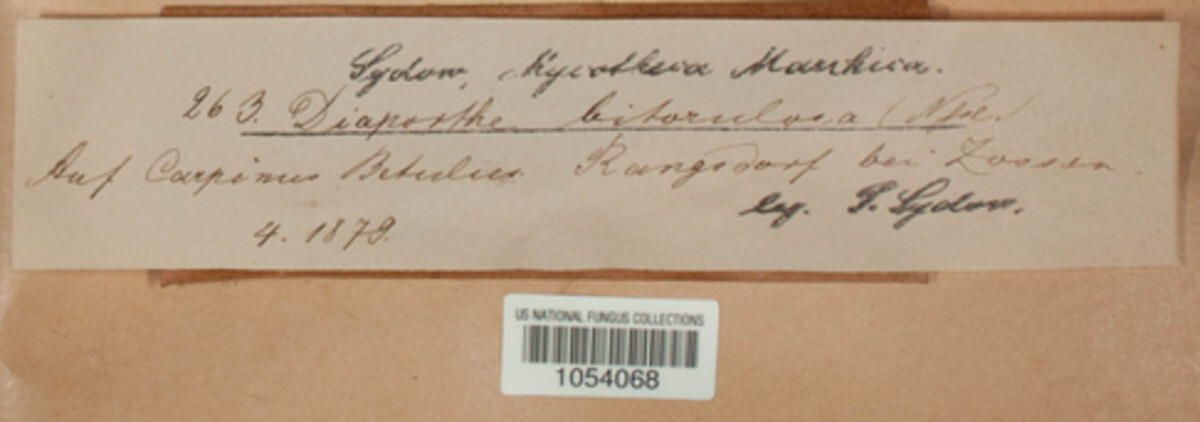 Sydow, Mycotheca Marchica.
263. Diaporthe bitorulosa (Nke.)
Auf Carpinus Betulus Rangsdorf bei Zossen.
leg. P. Sydow.
4. 1879.
US NATIONAL FUNGUS COLLECTIONS
1054068